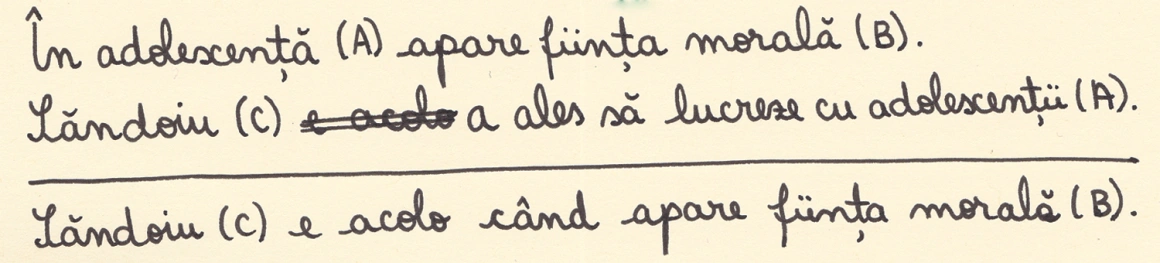 În adolescență (A) apare ființa morală (B).
Lăndoiu (C) e acolo a ales să lucreze cu adolescenții (A).
Lăndoiu (C) e acolo când apare ființa morală (B).